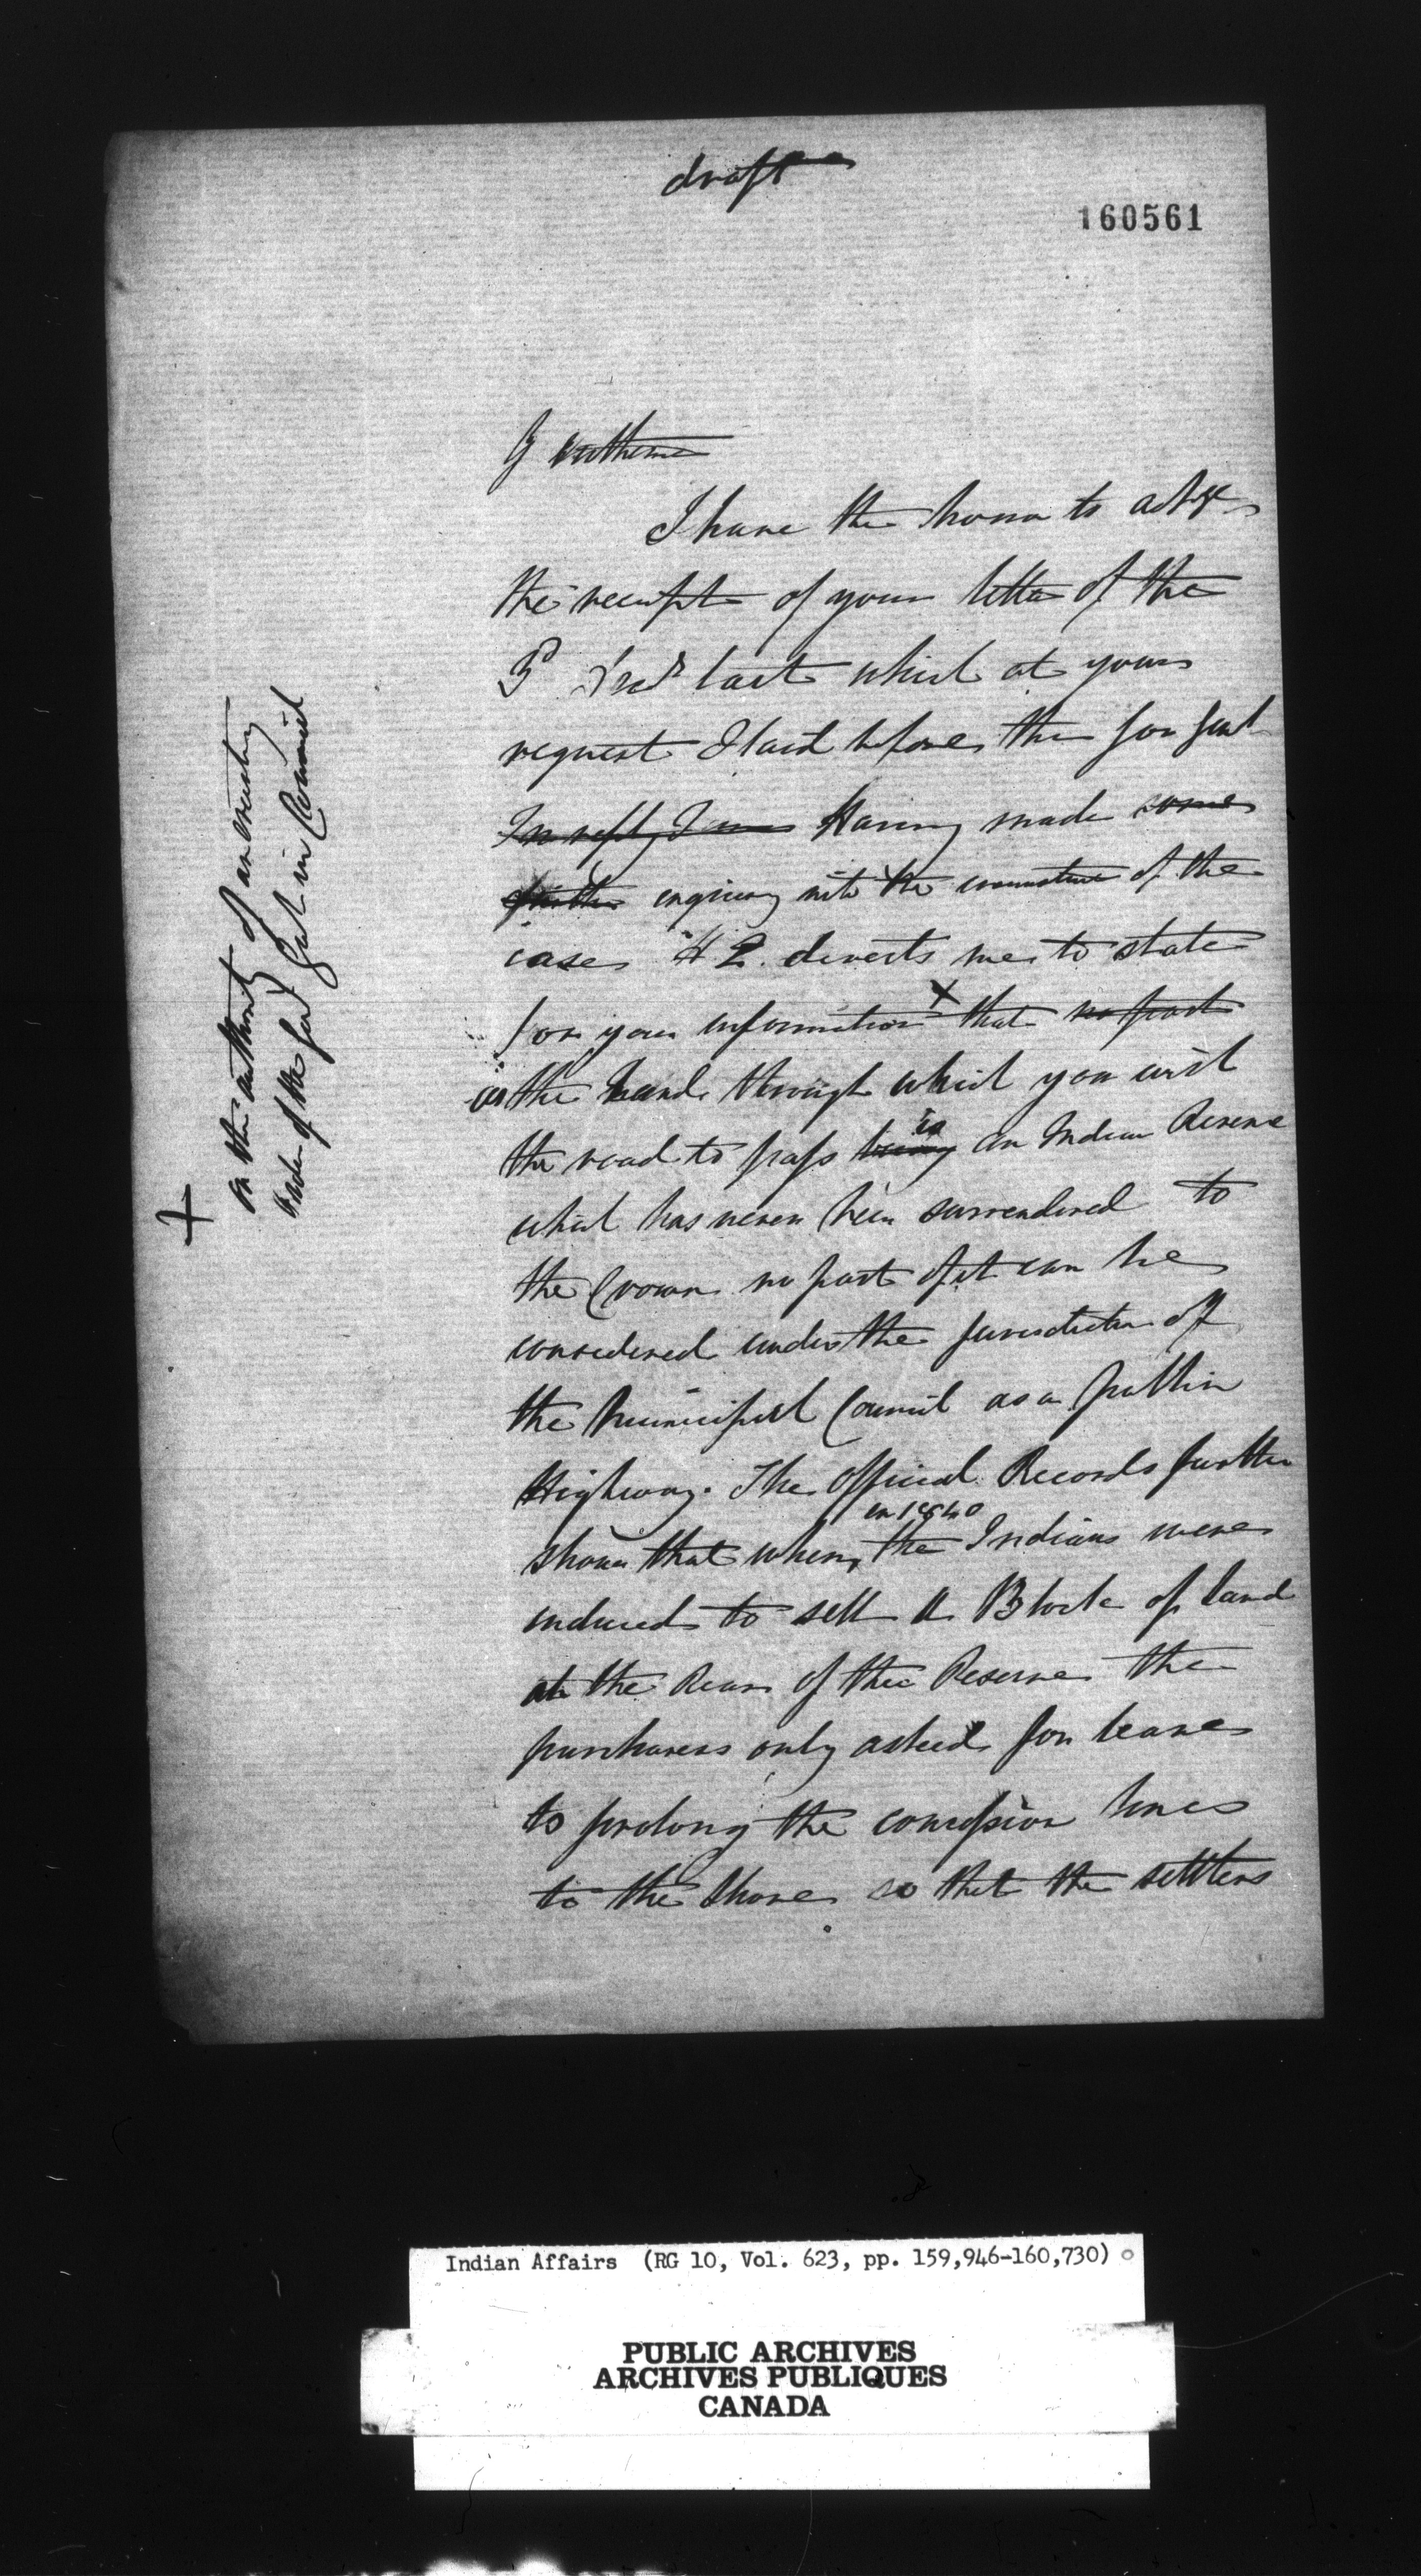 draft
160561
Gentlemen
I have the honor to ackge
the receipt of your letter of the
last which at your
request I laid before the Gov Genl
In reply I am Having made some
further enquiry into the circumstance of the
case H E. directs me to state
for your information + that no part
as the land through which you wish
the road to pass being is an Indian Reserve
which has never been surrendered to
the Crown no part of it can be
considered under the jurisdiction of
the Municipal Council as a public
Highway. The Official Records further
shows that when in 1840 the Indians were
induced to sell a Block of land
at the Rear of the Reserve the
purchasers only asked for leave
to prolong the concession lines
to the Shore so that the settlers
+
on the authority of an existing
Order of the Govr Genl in Council
Indian Affairs (RG 10, Vol. 623, pp. 159,946-160,730)
PUBLIC ARCHIVES
ARCHIVES PUBLIQUES
CANADA